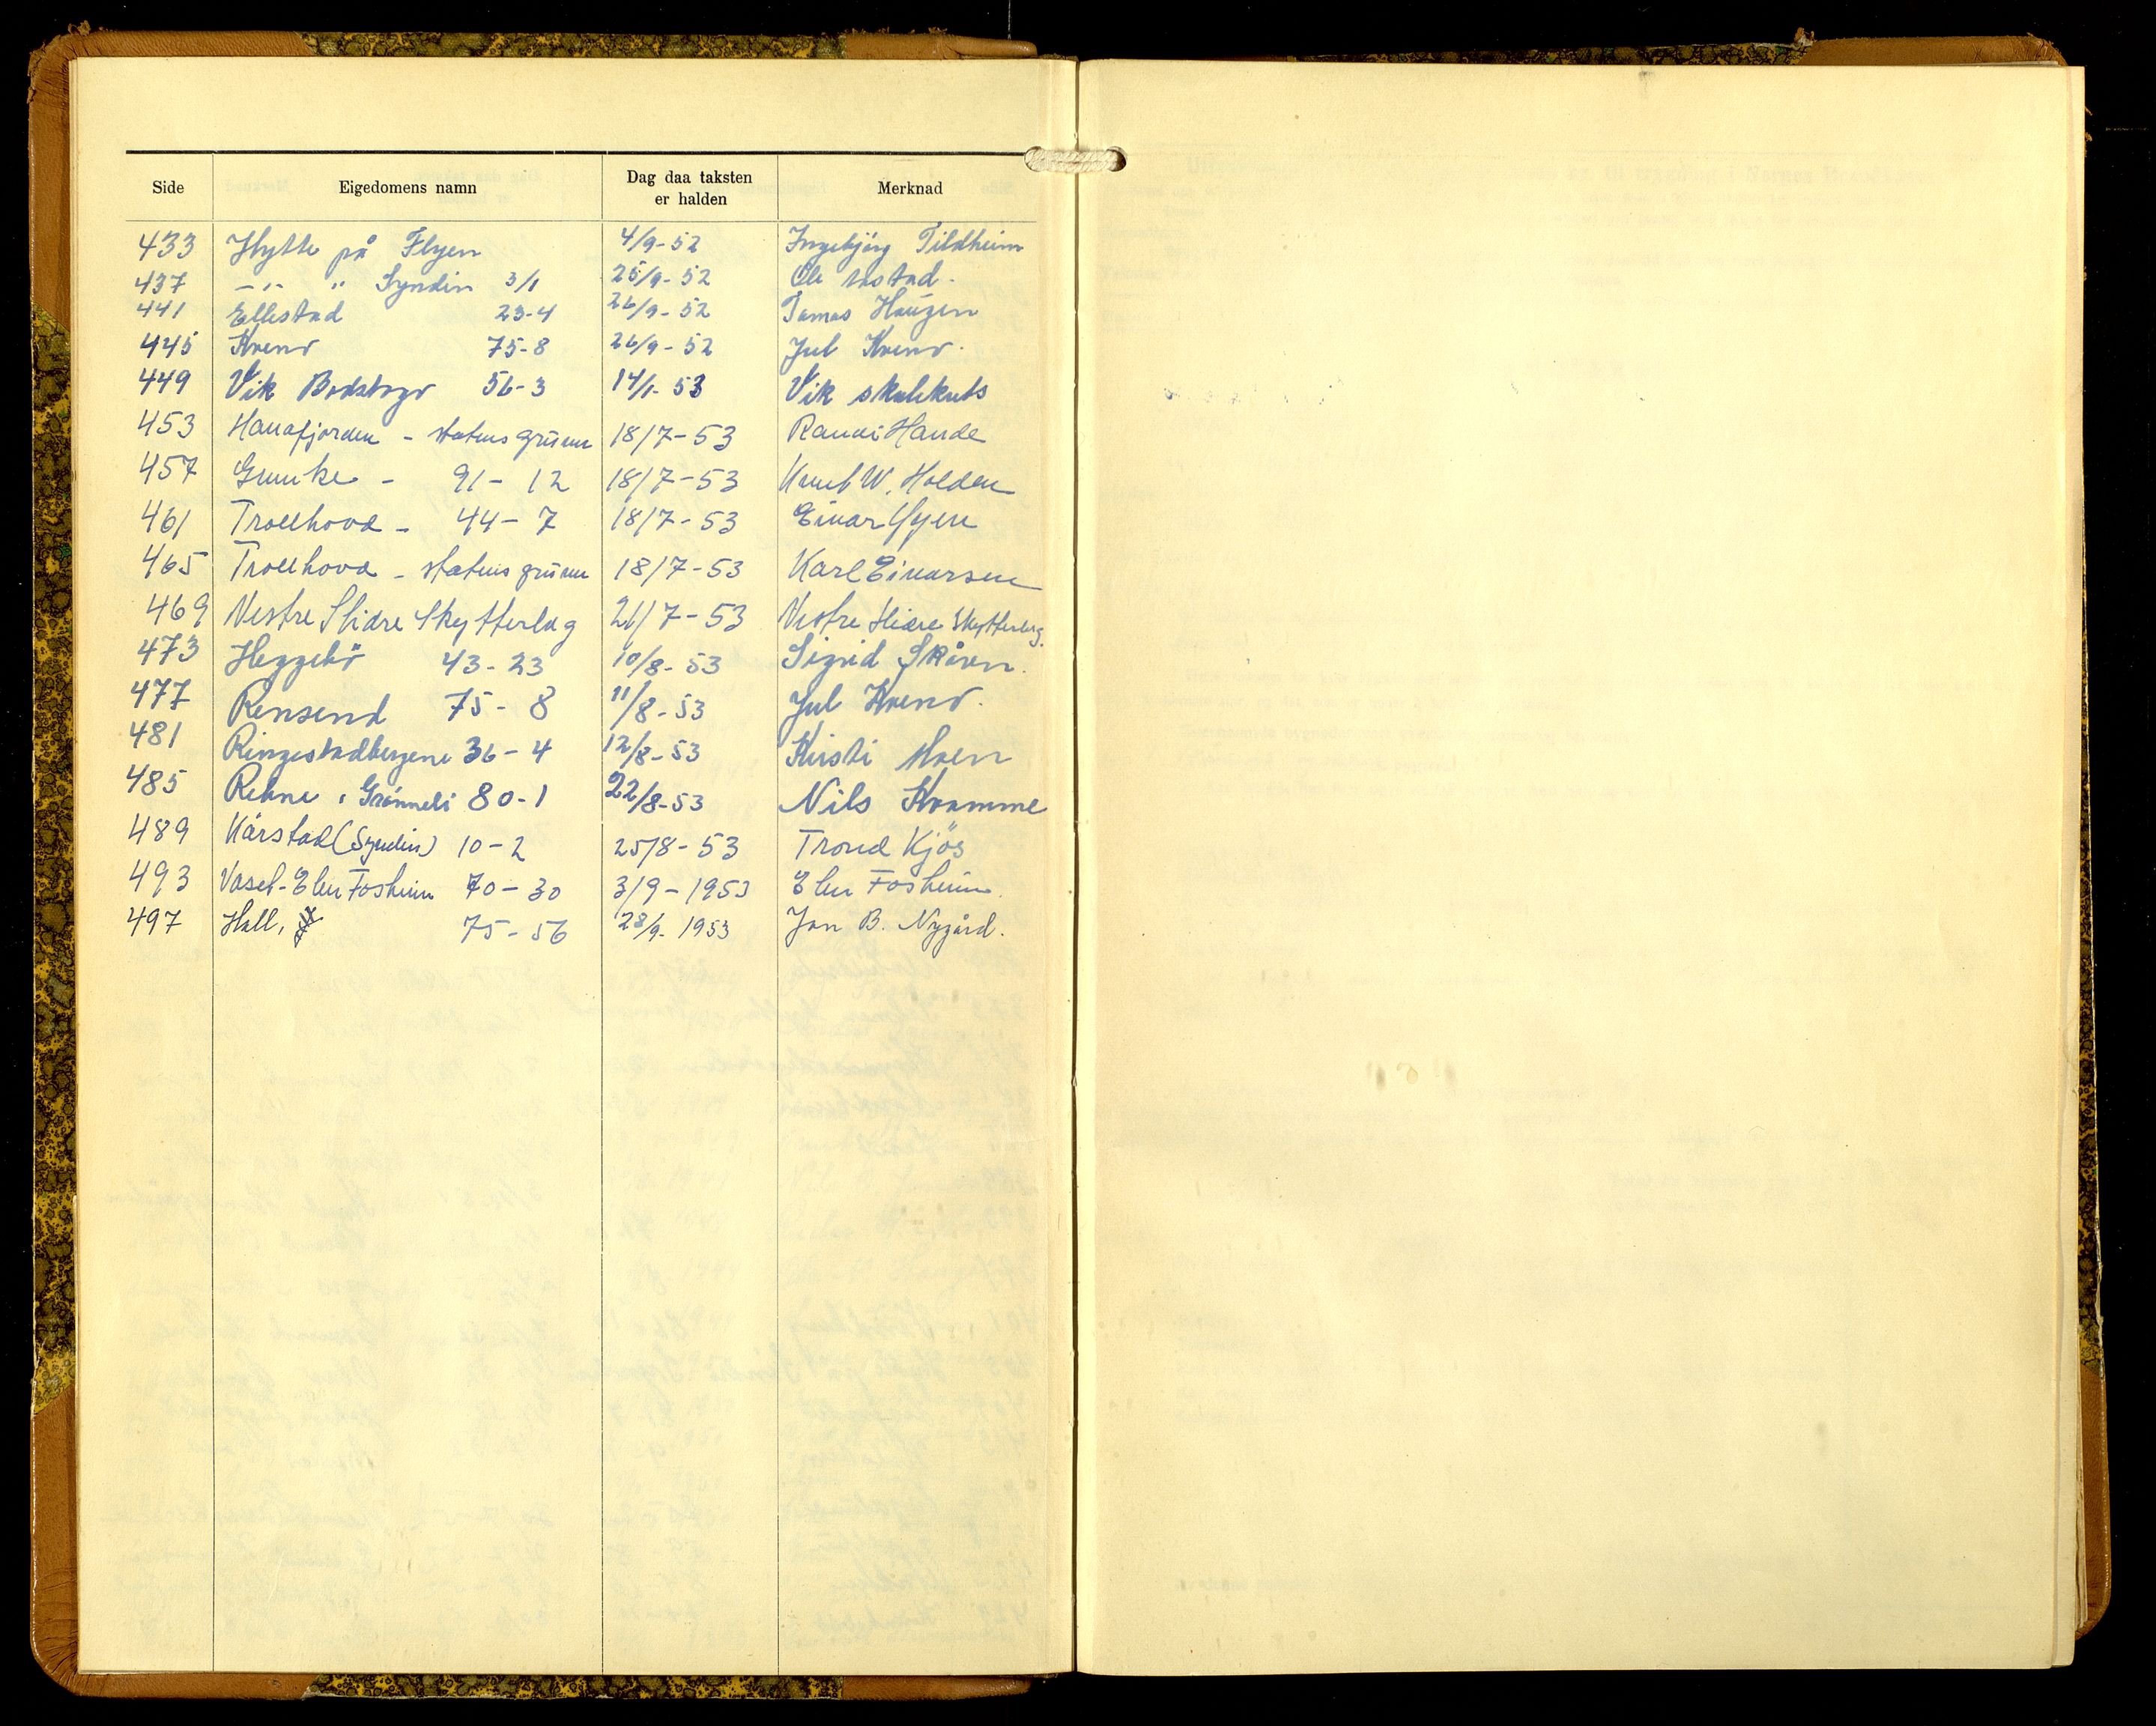 Side Eigedomens namn Dag daa taksten er halden Merknad
433 Hytte på Flyen 4/9-52 Ingebjörg Tildheim
437 -"- " Syndin 3/1 25/9-52 Ole
441 Ellestad 23-4 26/9-52 Tomas Haugen
445 Kvenð 75-8 26/9-52 Jul
449 Vik 56-3 14/1-53 Vik skulekrets
453 - statens grunn 18/7-53 Randi Hande
457 - 91-12 18/7-53 Knut W. Holden
461 Trollhovd - 44-7 18/7-53 Einar
465 Trollhovd - statens grunn 18/7-53 Karl Einarsen
469 Vestre Slidre Skytterlag 21/7-53 Vestre Slidre Skytterlag.
473 Heggebö 43-23 10/8-53 Sigrid Skåren.
477 Rensend 75-8 11/8-53 Jul
481 Ringestadbergene 36-4 12/8-53 Kirsti Moen
485 Rekne i Grönneli 80-1 22/8-53 Nils Kvamme
489 Kårstad (Syndin) 10-2 25/8-53 Trond Kjös
493 Vaset-Elen Fosheim 70-30 3/9-1953 Elen Fosheim.
497 Hall, 75-56 28/9-1953 Jon B. Nygård.